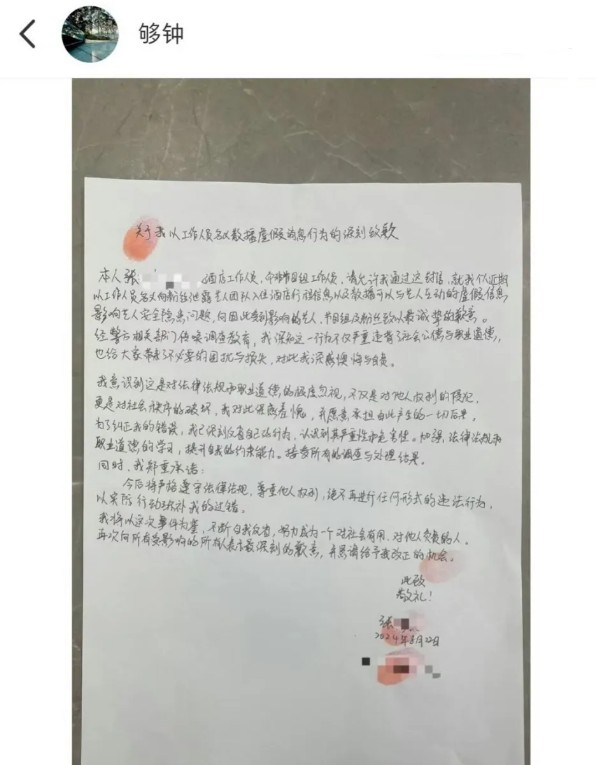 够钟
关于我以工作人员名义散播虚假消息行为的深刻致歉
本人张 酒店工作人员,今非节目组工作人员,请允许我通过这封信,就我个人近期
以工作人员名义向粉丝泄露艺人团队入住酒店行程信息以及散播可以与艺人互动的虚假信息
影响艺人安全隐患问题,向因此受到影响的艺人、节目组及粉丝致以最诚挚的歉意。
经警方相关部门传唤调查教育,我深知这一行为不仅严重违背了社会公德与职业道德,
也给大家带来了不必要的困扰与损失,对此我深感懊悔与自责。
我意识到这是对法律法规和职业道德的极度忽视,不仅是对他人权利的侵犯,
更是对社会秩序的破坏,我对此深感羞愧,并愿意承担由此产生的一切后果。
为了纠正我的错误,我已深刻反省自己的行为,认识到其严重性和危害性。加强法律法规和
职业道德的学习,提升自我的约束能力。接受所有的调查与处理结果。
同时,我郑重承诺:
今后将严格遵守法律法规,尊重他人权利,绝不再进行任何形式的违法行为,
以实际行动弥补我的过错。
我将以这次事件为鉴,不断自我反省,努力成为一个对社会有用、对他人负责的人。
再次向所有受影响的所有人表示最深刻的歉意,并恳请给予我改正的机会。
此致
敬礼!
张
2024年 月22日